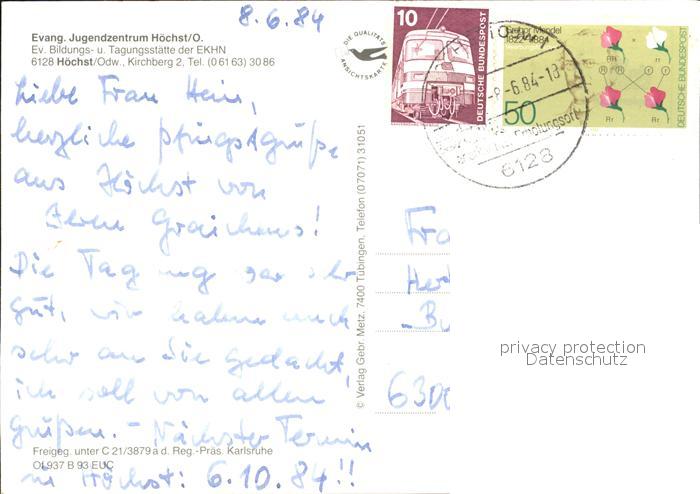 8.6.84
Evang. Jugendzentrum Höchst/O.
Ev. Bildungs- u. Tagungsstätte der EKHN
6128 Höchst/Odw., Kirchberg 2, Tel. (0 61 63) 30 86
DIE QUALITÄTS
ANSICHTSKARTE
10
DEUTSCHE BUNDESPOST
Gregor Mendel
1822-1884
50
RR rr
R R r r
Rr Rr
DEUTSCHE BUNDESPOST
-6.84-13
Erholungsort
6128
Liebe Frau Hein,
herzliche Pfingstgrüße
aus Höchst von
Ihren
Die Tagung war sehr
gut, wir haben auch
sehr an Sie gedacht,
ich soll von allen
grüßen. - Nächster Termin
in Höchst: 6.10.84!!
Freigeg. unter C 21/3879 a d. Reg.-Präs. Karlsruhe
OI 937 B 93 EUC
© Verlag Gebr. Metz, 7400 Tübingen, Telefon (07071) 31051
Fra
Her
-Bu
6300
privacy protection
Datenschutz